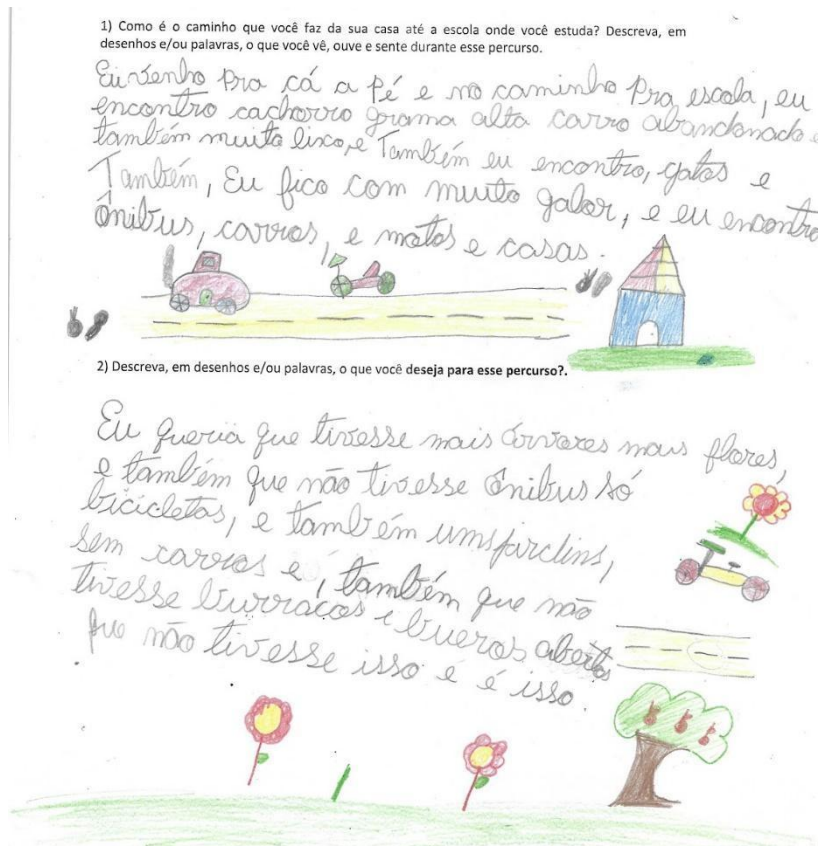 1) Como é o caminho que você faz da sua casa até a escola onde você estuda? Descreva, em
desenhos e/ou palavras, o que você vê, ouve e sente durante esse percurso.
Eu venho pra cá a pé e no caminho pra escola, eu
encontro cachorro grama alta carro abandonado e
também muito lixo, e Também eu encontro, gatos e
Também, Eu fico com muito galor, e eu encontro
ônibus, carros, e motos e casas.
2) Descreva, em desenhos e/ou palavras, o que você deseja para esse percurso?.
Eu queria que tivesse mais árvores mais flores,
e também que não tivesse ônibus só
bicicletas, e também uns jardins,
sem carros e, também que não
tivesse burracos e bueros abertos
que não tivesse isso e é isso.